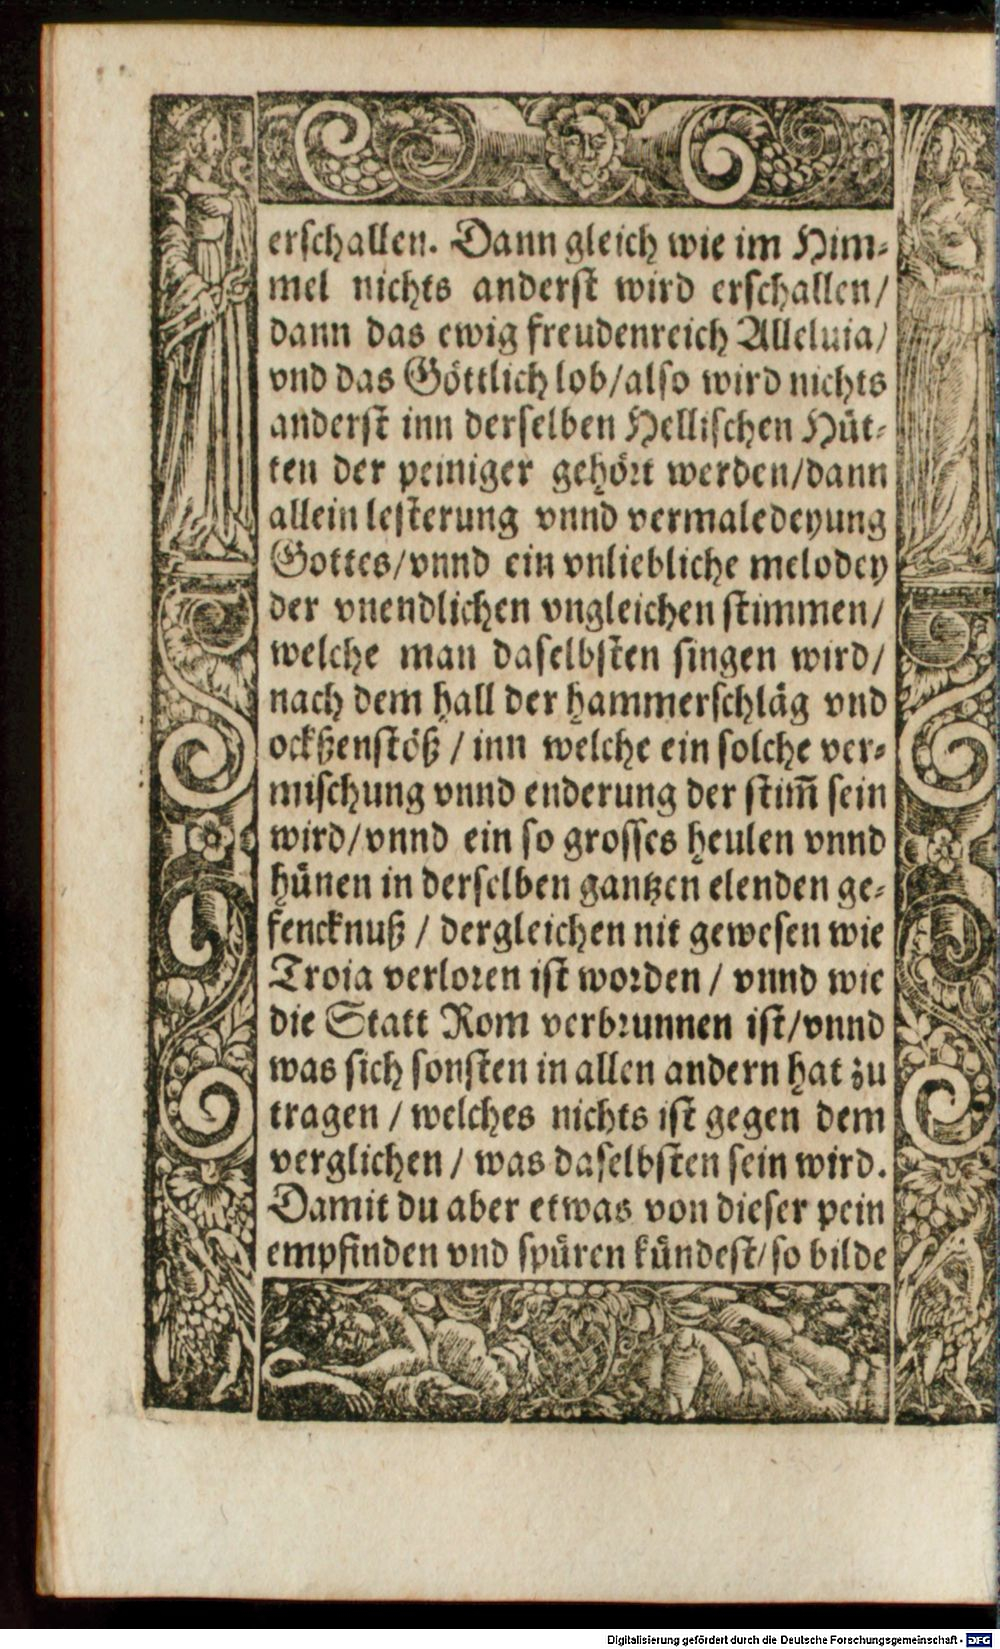 erschallen. Dann gleich wie im Him-
mel nichts anderst wird erschallen/
dann das ewig freudenreich Alleluia/
vnd das Göttlich lob/also wird nichts
anderst inn derselben Hellischen Hüt-
ten der peiniger gehört werden/dann
allein lesterung vnnd vermaledeyung
Gottes/vnnd ein vnliebliche melodey
der vnendlichen vngleichen stimmen/
welche man daselbsten singen wird/
nach dem hall der hammerschläg vnd
ockßenstöß / inn welche ein solche ver-
mischung vnnd enderung der stim̃ sein
wird/vnnd ein so grosses heulen vnnd
hünen in derselben gantzen elenden ge-
fencknuß / dergleichen nit gewesen wie
Troia verloren ist worden / vnnd wie
die Statt Rom verbrunnen ist/vnnd
was sich sonsten in allen andern hat zu
tragen / welches nichts ist gegen dem
verglichen / was daselbsten sein wird.
Damit du aber etwas von dieser pein
empfinden vnd spüren kündest/so bilde
Digitalisierung gefördert durch die Deutsche Forschungsgemeinschaft - DFG